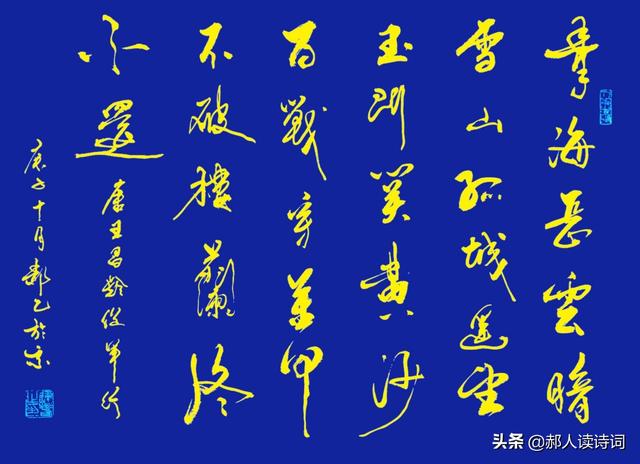 青海長雲暗
雪山孤城遥望
玉门关黄沙
百戰穿金甲
不破樓蘭終
不還
唐王昌齡從軍行
庚子十月於京
头条 @郝人读诗词